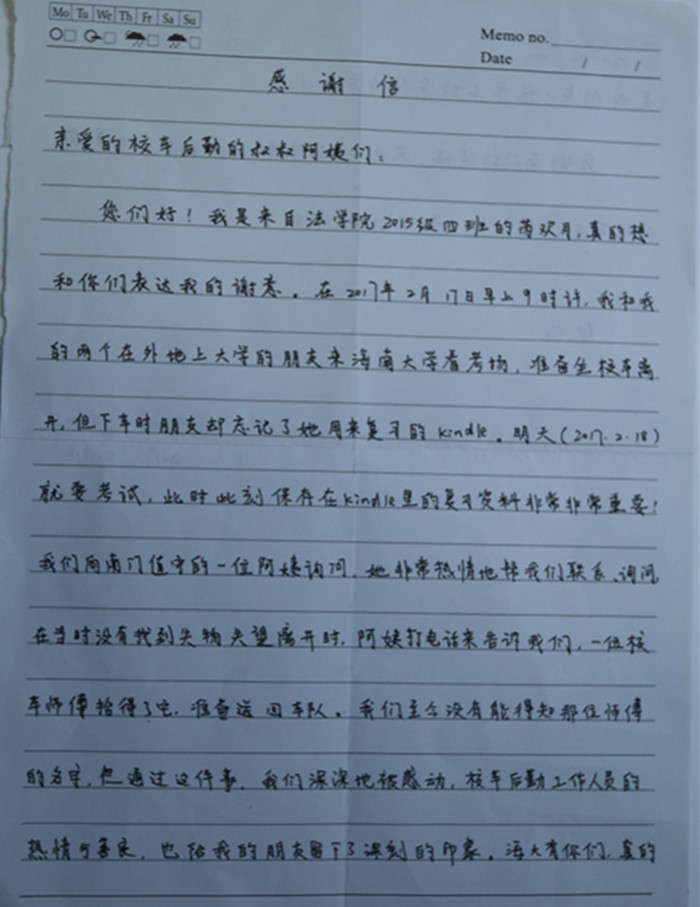 Mo Tu We Th Fr Sa Su
Memo no.
Date / /
感谢信
亲爱的校车后勤的叔叔阿姨们：
您们好！我是来自法学院2015级四班的芮欢月，真的想
和你们表达我的谢意。在2017年2月17日早上9时许，我和我
的两个在外地上大学的朋友来海南大学看考场，准备坐校车离
开，但下车时朋友却忘记了她用来复习的kindle。明天（2017.2.18）
就要考试，此时此刻保存在kindle里的复习资料非常非常重要！
我们向南门值守的一位阿姨询问，她非常热情地帮我们联系、询问
在当时没有找到失物失望离开时，阿姨打电话来告诉我们，一位校
车师傅拾得了它，准备送回车队。我们至今没有能得知那位师傅
的名字，但通过这件事，我们深深地被感动，校车后勤工作人员的
热情与善良，也给我的朋友留下了深刻的印象。海大有你们，真的